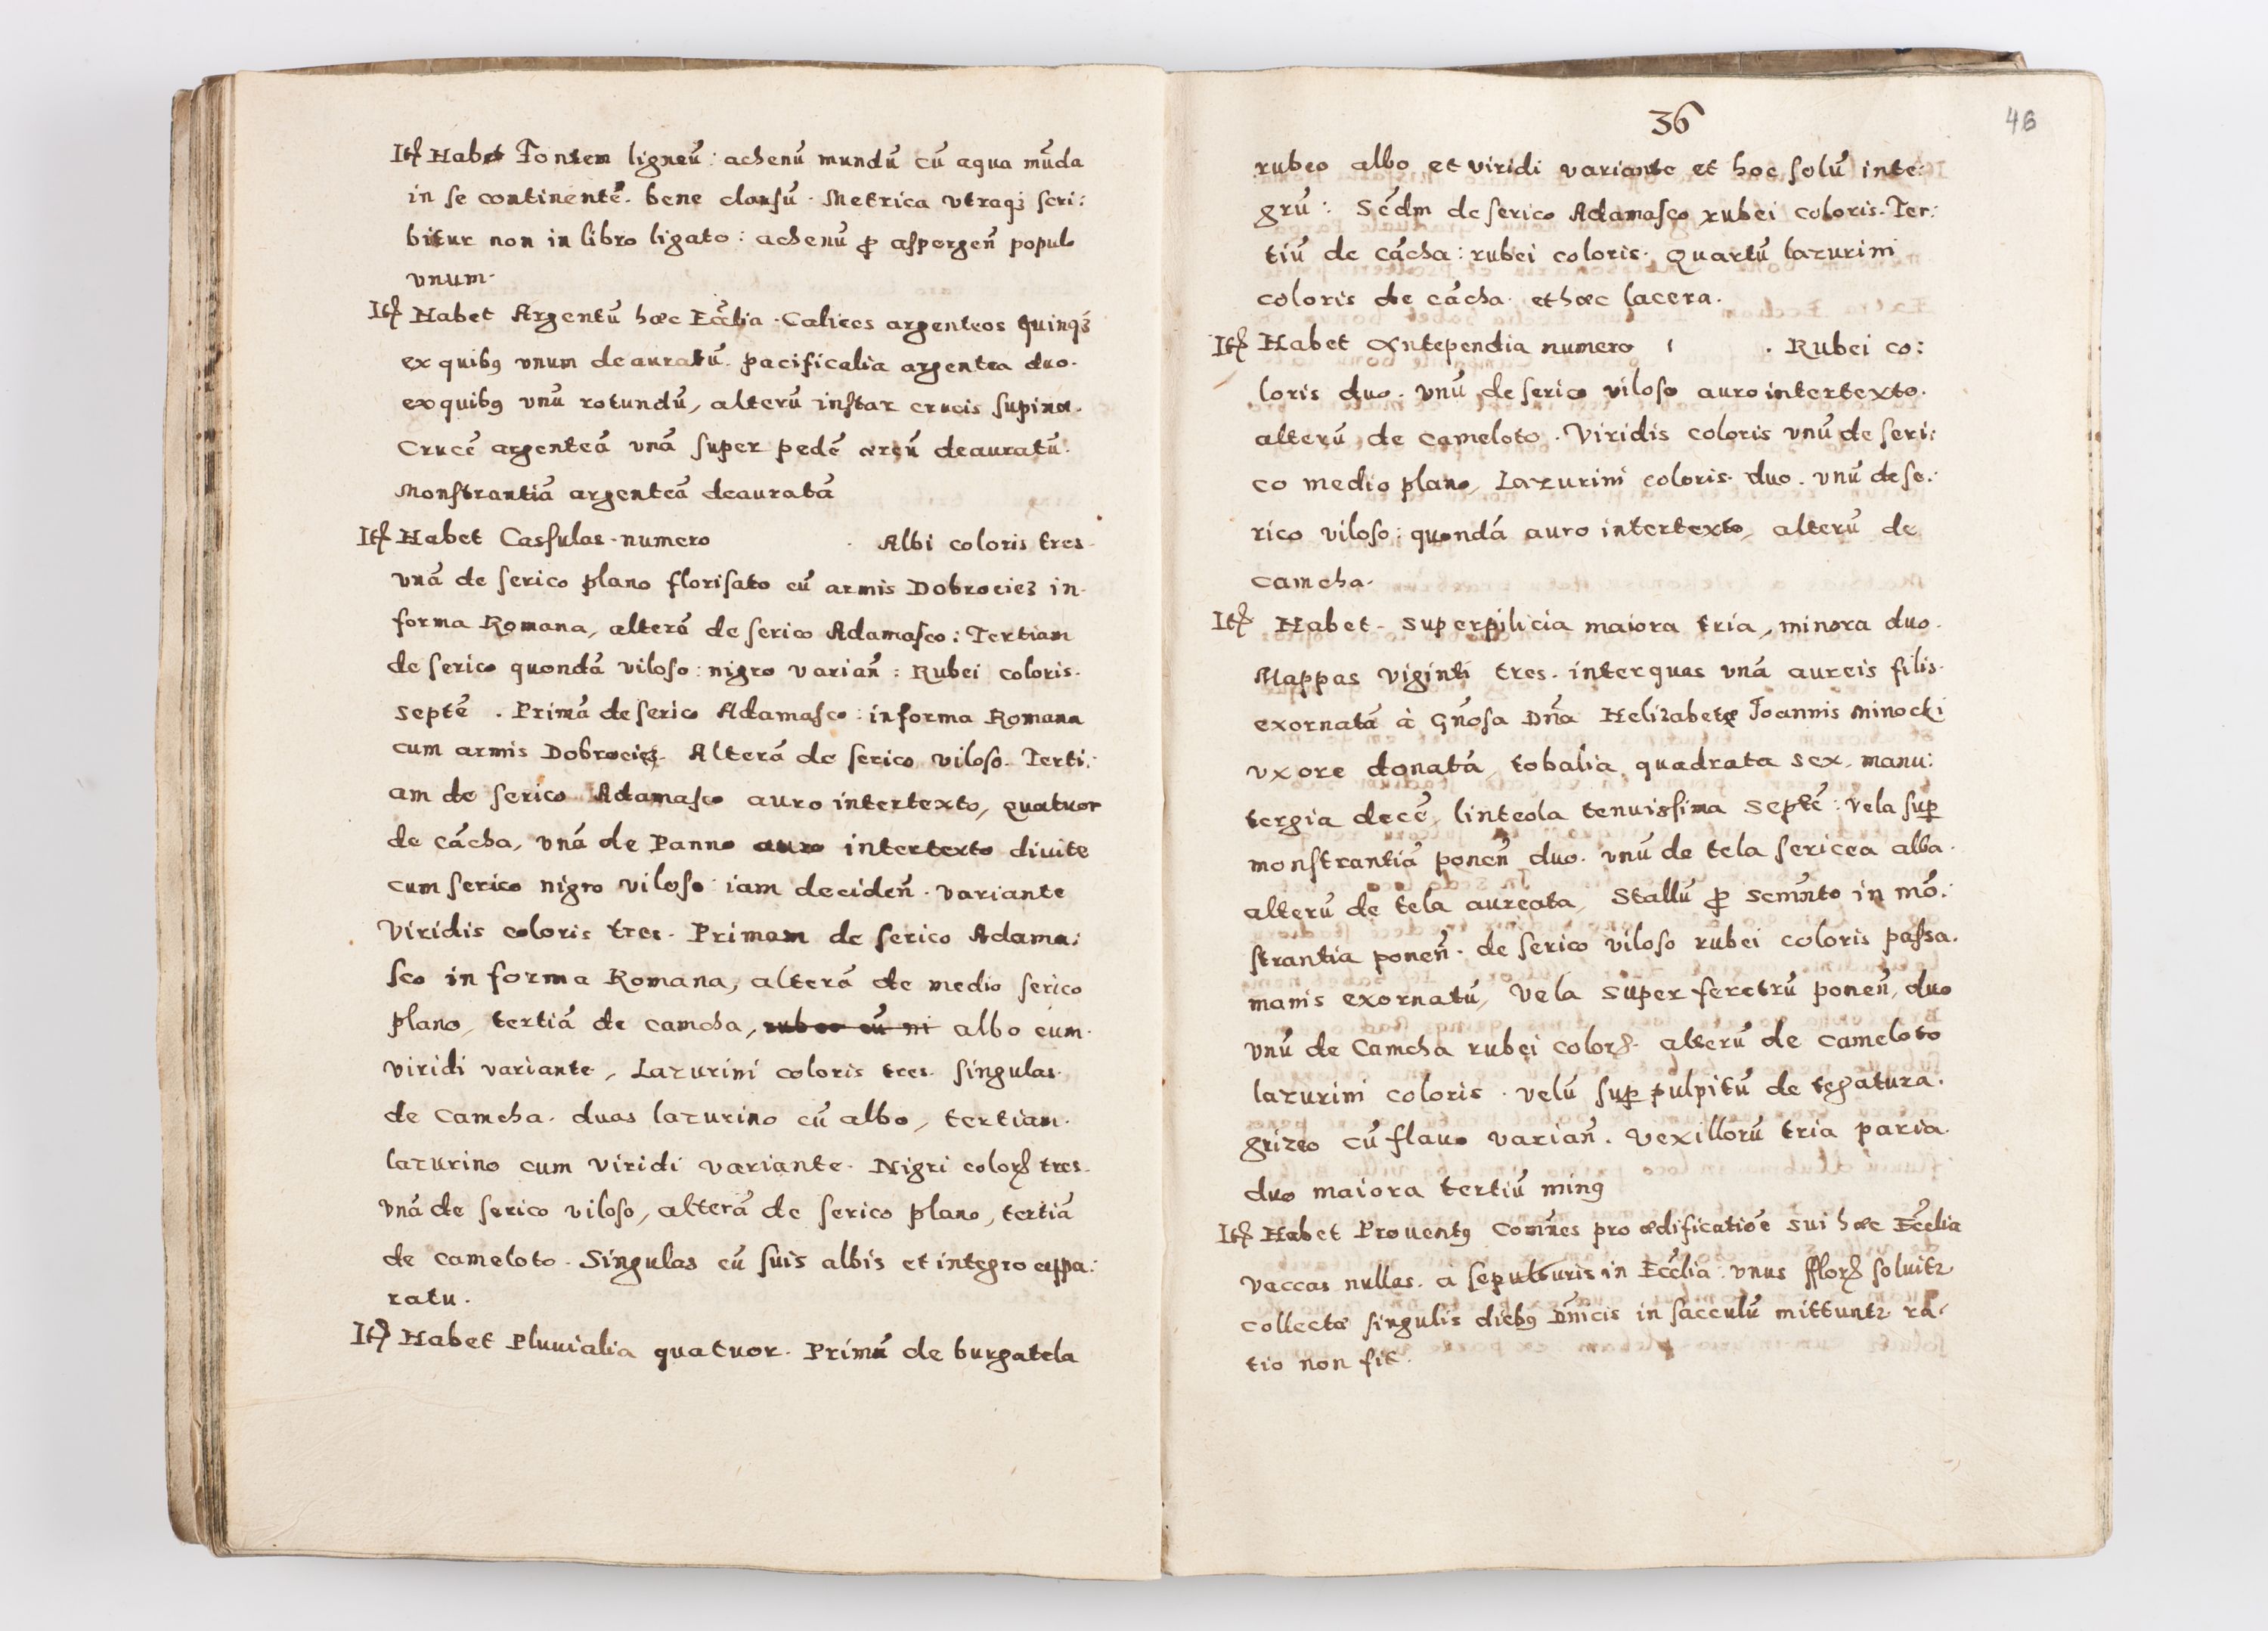 Itꝫ Habet Fontem ligneũ: achenũ mundũ cũ aqua mũda
in se continentẽ. bene clausũ. Metrica vtraqꝫ scri:
bitur non in libro ligato: achenũ ꝓ aspergeñ populo
vnum.
Itꝫ Habet Argentũ hæc Eccl̃ia. Calices argenteos quinqꝫ
ex quibꝰ vnum deauratũ. pacificalia argentea duo.
ex quibꝰ vnũ rotundũ, alterũ instar crucis supina.
Crucẽ argenteã vnã super pedẽ æreũ deauratũ.
Monstrantiã argenteã deauratã
Itꝫ Habet Cassulas numero . Albi coloris tres.
vnã de serico plano florisato cũ armis Dobrociez in
forma Romana, alterã de serico Adamasco: Tertiam
de serico quondã viloso: nigro variañ: Rubei coloris.
septẽ. Primã de serico Adamasco: in forma Romana
cum armis Dobrociez. Alterã de serico viloso. Terti:
am de serico Adamasco auro intertexto, quatuor
de cãcha, vnã de Panno auro intertexto diuite
cum serico nigro viloso iam decideñ. variante
Viridis coloris tres. Primam de serico Adama:
sco in forma Romana, alterã de medio serico
plano, tertiã de camcha, rubeo cũ ni albo cum.
viridi variante, Lazurini coloris tres. singulas.
de camcha. duas lazurino cũ albo, tertiam.
lazurino cum viridi variante. Nigri colorꝭ tres.
vnã de serico viloso, alterã de serico plano, tertiã
de cameloto. Singulas cũ suis albis et integro appa:
ratu.
Itꝫ Habet Pluuialia quatuor. Primũ de burgatela
36
48
rubeo albo et viridi variante et hoc solũ inte:
grũ: Sec̃dm de serico Adamasco rubei coloris. Ter:
tiũ de cãcha: rubei coloris. Quartũ lazurini
coloris de cãcha. et hæc lacera.
Itꝫ Habet Antependia numero . Rubei co:
loris duo. vnũ de serico viloso auro intertexto.
alterũ de cameloto. Viridis coloris vnũ de seri:
co medio plano, Lazurini coloris duo. vnũ de se:
rico viloso: quondã auro intertexto, alterũ de
camcha.
Itꝫ Habet superpilicia maiora tria, minora duo.
Mappas viginti tres. inter quas vnã aureis filis.
exornatã à Gñosa Dña Helizabetæ Joannis Minocki
vxore donatã, tobalia quadrata sex, manu:
tergia decẽ, linteola tenuissima septẽ: Vela suꝑ
monstrantiã poneñ duo. vnũ de tela sericea alba.
alterũ de tela aureata, Stallũ ꝓ Scm̃nto in mõ:
strantia poneñ. de serico viloso rubei coloris passa.
manis exornatũ, Vela super feretrũ poneñ, duo
vnũ de Camcha rubei colorꝭ. alterũ de cameloto
lazurini coloris. velũ suꝑ pulpitũ de tegatura.
grizeo cũ flauo variañ. Vexillorũ tria paria.
duo maiora tertiũ minꝰ
Itꝫ Habet Prouentꝰ Com̃nes pro ædificatiõe sui hæc Eccl̃ia
vaccas nullas. à sepulturis in Eccl̃ia. vnus fflorꝭ soluitꝛ
collectæ singulis diebꝰ Dñicis in sacculũ mittuntꝛ ra:
tio non fit.